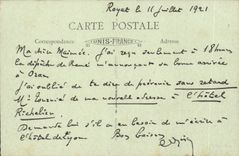 Royat le 11 Juillet 1921
CARTE POSTALE
Correspondance
TUNIS-FRANCE
Adresse
Ma chère Maimée. J'ai reçu seulement à 18 heures
la dépêche de René m'annonçant sa bonne arrivée
à Oran
J'ai oublié de te dire de prévenir sans retard
Mr de ma nouvelle adresse à l'hôtel
Richelieu
Demande lui s'il a eu besoin de m'écrire à
l'hôtel de Lyon. Bons baisers